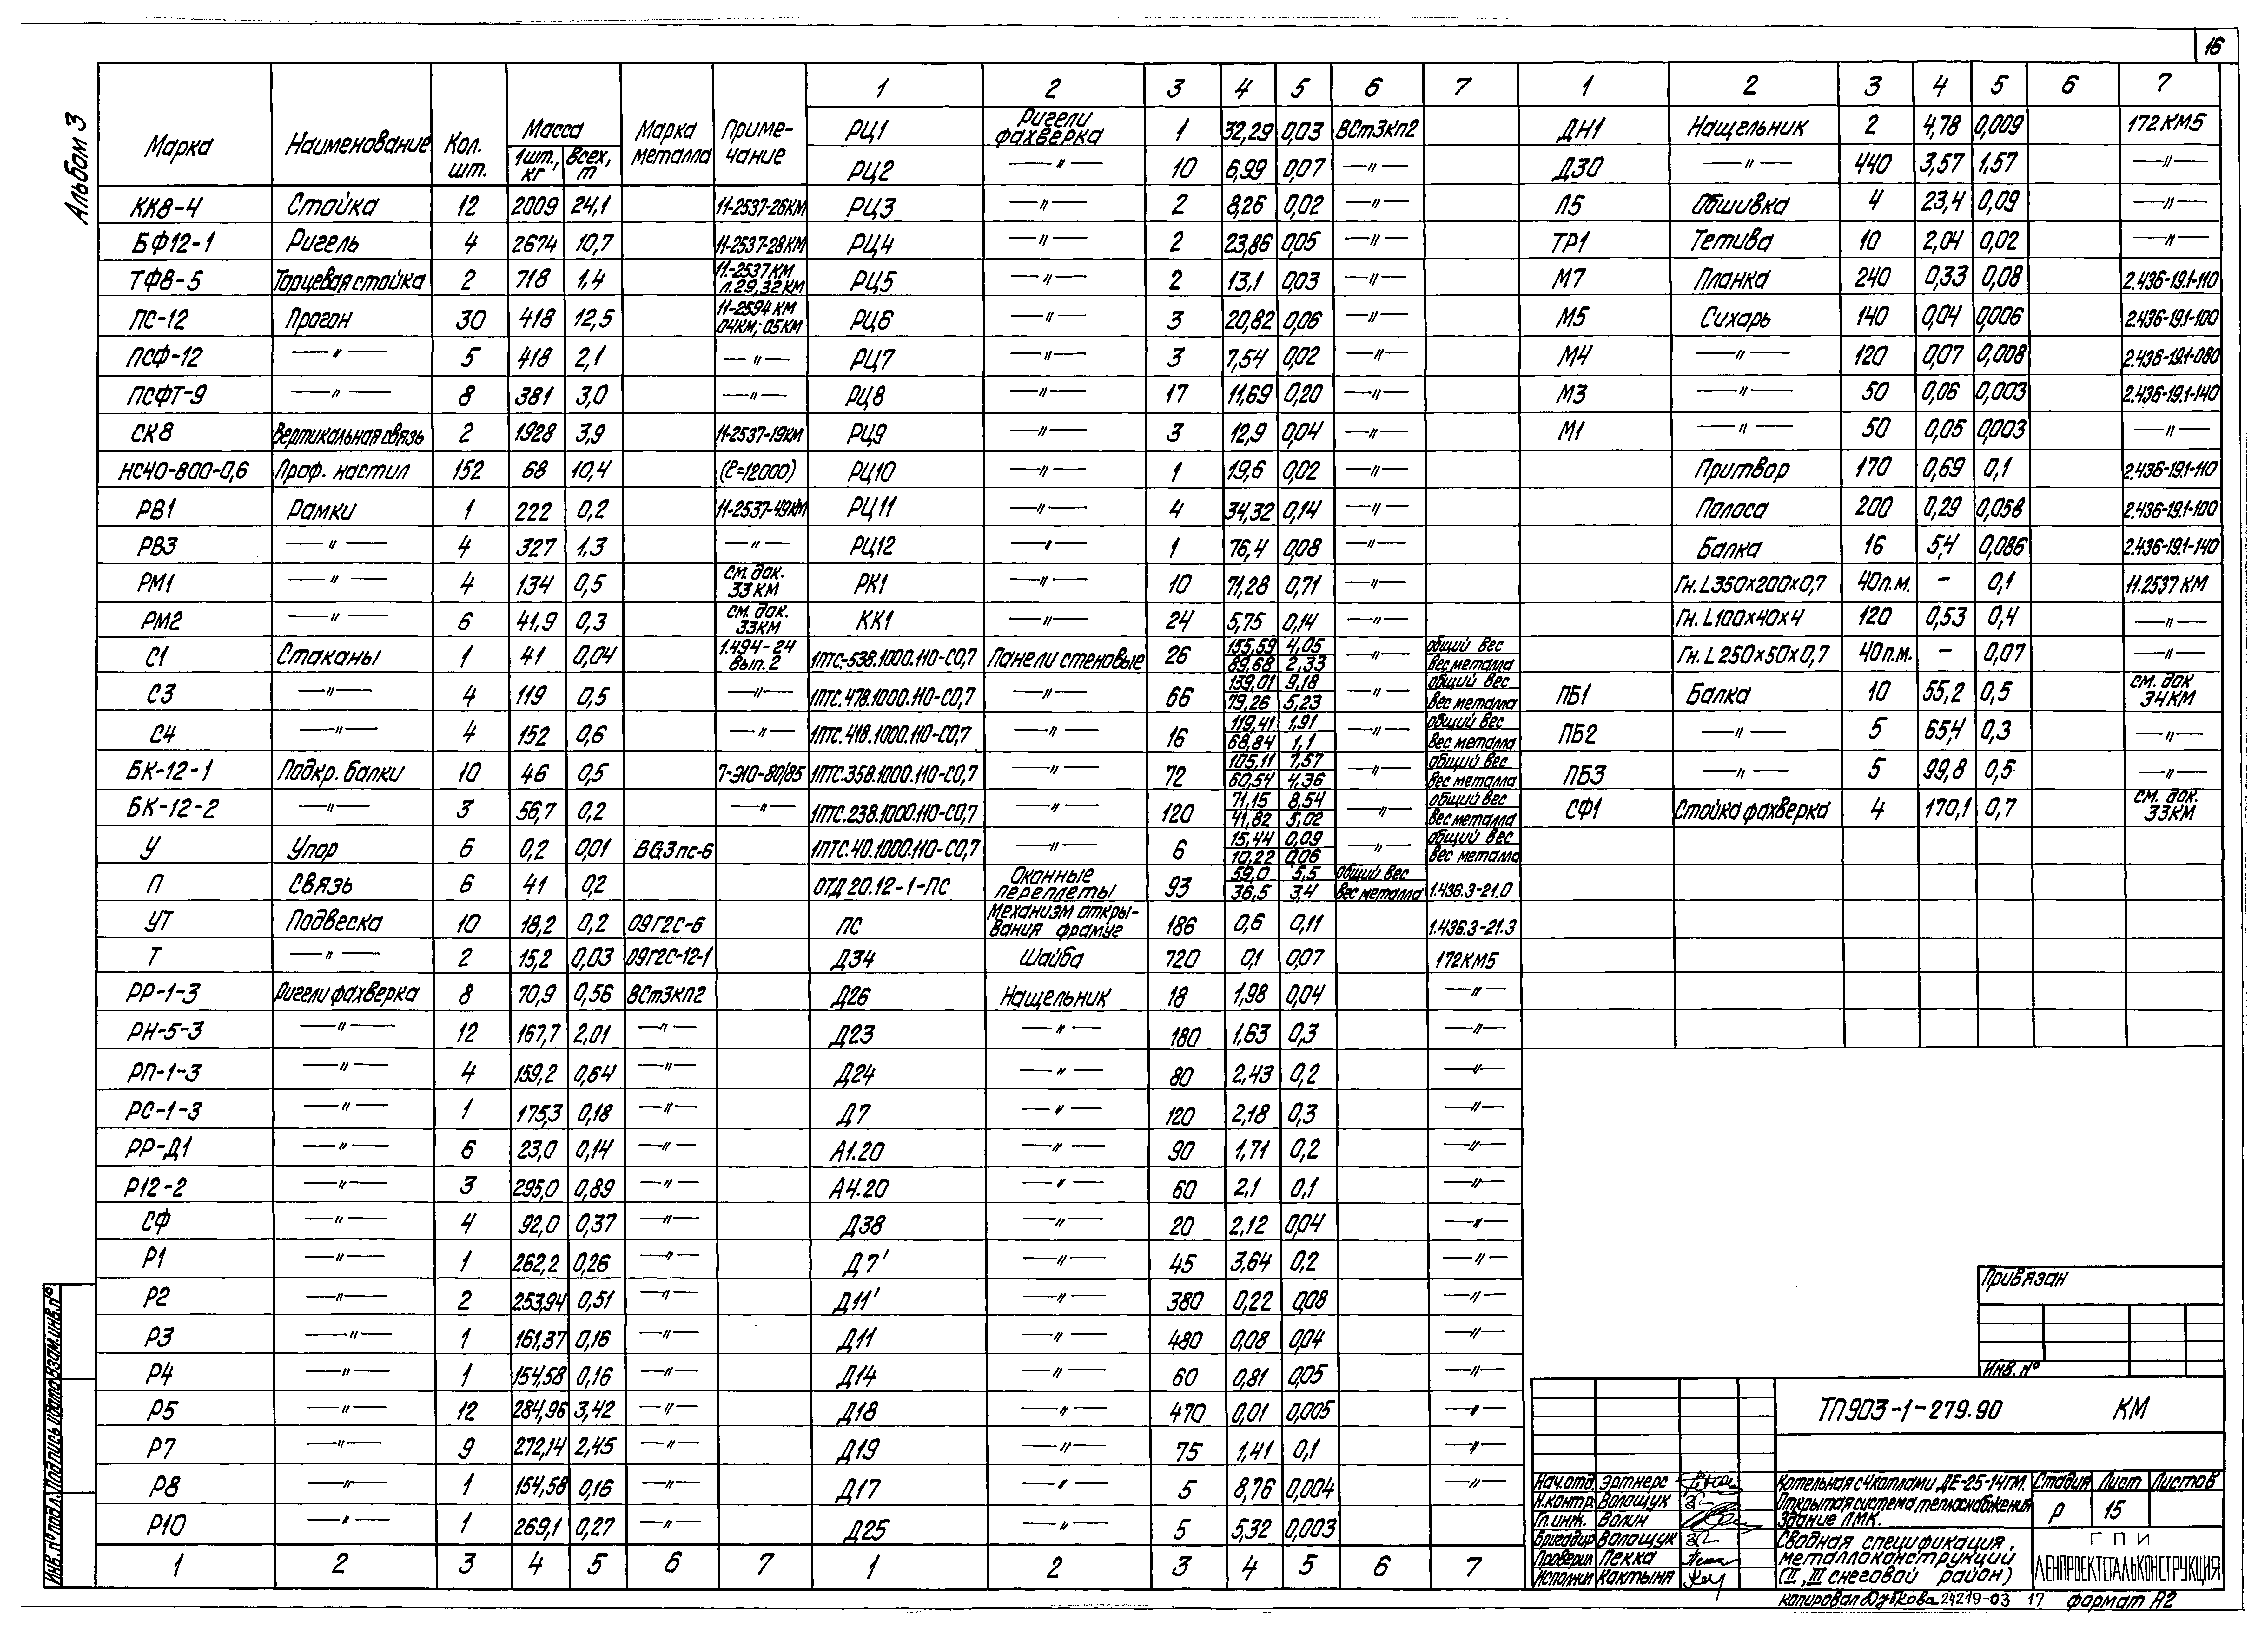 16
Альбом 3
Марка Наименование Кол. шт. Масса 1шт., кг Всех, т Марка металла Приме-чание
КК8-4 Стойка 12 2009 24,1 11-2537-26КМ
БФ12-1 Ригель 4 2674 10,7 11-2537-28КМ
ТФ8-5 Торцевая стойка 2 718 1,4 11-2537КМ л.29,32КМ
ПС-12 Прогон 30 418 12,5 11-2594КМ 04КМ; 05КМ
ПСФ-12 —"— 5 418 2,1 —"—
ПСФТ-9 —"— 8 381 3,0 —"—
СК8 Вертикальная связь 2 1928 3,9 11-2537-19КМ
НС40-800-0,6 Проф. настил 152 68 10,4 (ℓ=12000)
РВ1 Рамки 1 222 0,2 11-2537-49КМ
РВ3 —"— 4 327 1,3 —"—
РМ1 —"— 4 134 0,5 см. док. 33КМ
РМ2 —"— 6 41,9 0,3 см. док. 33КМ
С1 Стаканы 1 41 0,04 1.494-24 Вып.2
С3 —"— 4 119 0,5 —"—
С4 —"— 4 152 0,6 —"—
БК-12-1 Подкр. балки 10 46 0,5 7-Э10-80/85
БК-12-2 —"— 3 56,7 0,2 —"—
У Упор 6 0,2 0,01 ВСт3пс-6
П Связь 6 41 0,2
УТ Подвеска 10 18,2 0,2 09Г2С-6
Т —"— 2 15,2 0,03 09Г2С-12-1
РР-1-3 Ригели фахверка 8 70,9 0,56 ВСт3кп2
РН-5-3 —"— 12 167,7 2,01 —"—
РП-1-3 —"— 4 159,2 0,64 —"—
РС-1-3 —"— 1 175,3 0,18 —"—
РР-Д1 —"— 6 23,0 0,14 —"—
Р12-2 —"— 3 295,0 0,89 —"—
СФ —"— 4 92,0 0,37 —"—
Р1 —"— 1 262,2 0,26 —"—
Р2 —"— 2 253,94 0,51 —"—
Р3 —"— 1 161,37 0,16 —"—
Р4 —"— 1 154,58 0,16 —"—
Р5 —"— 12 284,96 3,42 —"—
Р7 —"— 9 272,14 2,45 —"—
Р8 —"— 1 154,58 0,16 —"—
Р10 —"— 1 269,1 0,27 —"—
1 2 3 4 5 6 7
1 2 3 4 5 6 7
РЦ1 Ригели фахверка 1 32,29 0,03 ВСт3кп2
РЦ2 —"— 10 6,99 0,07 —"—
РЦ3 —"— 2 8,26 0,02 —"—
РЦ4 —"— 2 23,86 0,05 —"—
РЦ5 —"— 2 13,1 0,03 —"—
РЦ6 —"— 3 20,82 0,06 —"—
РЦ7 —"— 3 7,54 0,02 —"—
РЦ8 —"— 17 11,69 0,20 —"—
РЦ9 —"— 3 12,9 0,04 —"—
РЦ10 —"— 1 19,6 0,02 —"—
РЦ11 —"— 4 34,32 0,14 —"—
РЦ12 —"— 1 76,4 0,08 —"—
РК1 —"— 10 71,28 0,71 —"—
КК1 —"— 24 5,75 0,14 —"—
1ПТС-538.1000.110-С0,7 Панели стеновые 26 155,59 4,05 —"— общий вес
89,68 2,33 вес металла
1ПТС.478.1000.110-С0,7 —"— 66 139,01 9,18 —"— общий вес
79,26 5,23 вес металла
1ПТС.418.1000.110-С0,7 —"— 16 119,41 1,91 —"— общий вес
68,84 1,1 вес металла
1ПТС.358.1000.110-С0,7 —"— 72 105,11 7,57 —"— общий вес
60,54 4,36 вес металла
1ПТС.238.1000.110-С0,7 —"— 120 71,15 8,54 —"— общий вес
41,82 5,02 вес металла
1ПТС.40.1000.110-С0,7 —"— 6 15,44 0,09 —"— общий вес
10,22 0,06 вес металла
ОТД 20.12-1-ПС Оконные переплеты 93 59,0 5,5 общий вес
36,5 3,4 вес металла 1.436.3-21.0
ПС Механизм откры-вания фрамуг 186 0,6 0,11 1.436.3-21.3
Д34 Шайба 720 0,1 0,07 172КМ5
Д26 Нащельник 18 1,98 0,04 —"—
Д23 —"— 180 1,63 0,3 —"—
Д24 —"— 80 2,43 0,2 —"—
Д7 —"— 120 2,18 0,3 —"—
А1.20 —"— 90 1,71 0,2 —"—
А4.20 —"— 60 2,1 0,1 —"—
Д38 —"— 20 2,12 0,04 —"—
Д7' —"— 45 3,64 0,2 —"—
Д11' —"— 380 0,22 0,08 —"—
Д11 —"— 480 0,08 0,04 —"—
Д14 —"— 60 0,81 0,05 —"—
Д18 —"— 470 0,01 0,005 —"—
Д19 —"— 75 1,41 0,1 —"—
Д17 —"— 5 8,76 0,004 —"—
Д25 —"— 5 5,32 0,003
1 2 3 4 5 6 7
1 2 3 4 5 6 7
ДН1 Нащельник 2 4,78 0,009 172КМ5
Д30 —"— 440 3,57 1,57 —"—
Л5 Обшивка 4 23,4 0,09 —"—
ТР1 Тетива 10 2,04 0,02 —"—
М7 Планка 240 0,33 0,08 2.436-19.1-110
М5 Сухарь 140 0,04 0,006 2.436-19.1-100
М4 —"— 120 0,07 0,008 2.436-19.1-080
М3 —"— 50 0,06 0,003 2.436-19.1-140
М1 —"— 50 0,05 0,003 —"—
Притвор 170 0,69 0,1 2.436-19.1-110
Полоса 200 0,29 0,058 2.436-19.1-100
Балка 16 5,4 0,086 2.436-19.1-140
Гн. L350×200×0,7 40п.м. – 0,1 11.2537 КМ
Гн. L100×40×4 120 0,53 0,4 —"—
Гн. L250×50×0,7 40п.м. – 0,07 —"—
ПБ1 Балка 10 55,2 0,5 см. док 34КМ
ПБ2 —"— 5 65,4 0,3 —"—
ПБ3 —"— 5 99,8 0,5 —"—
СФ1 Стойка фахверка 4 170,1 0,7 см. док. 33КМ
Привязан
Инв. N°
ТП903-1-279.90 КМ
Нач.отд. Эртнерс
Н.контр. Волощук
Гл.инж. Волин
Бригадир Волощук
Проверил Пекка
Исполнил Кактыня
Котельная с 4 котлами ДЕ-25-14ГМ.
Открытая система теплоснабжения
Здание ЛМК.
Стадия Лист Листов
Р 15
Сводная спецификация,
металлоконструкций
(II, III снеговой район)
ГПИ
ЛЕНПРОЕКТСТАЛЬКОНСТРУКЦИЯ
Копировал Дубкова 24219-03 17 формат А2
Инв.N°подл. Подпись и дата Взам.инв.N°